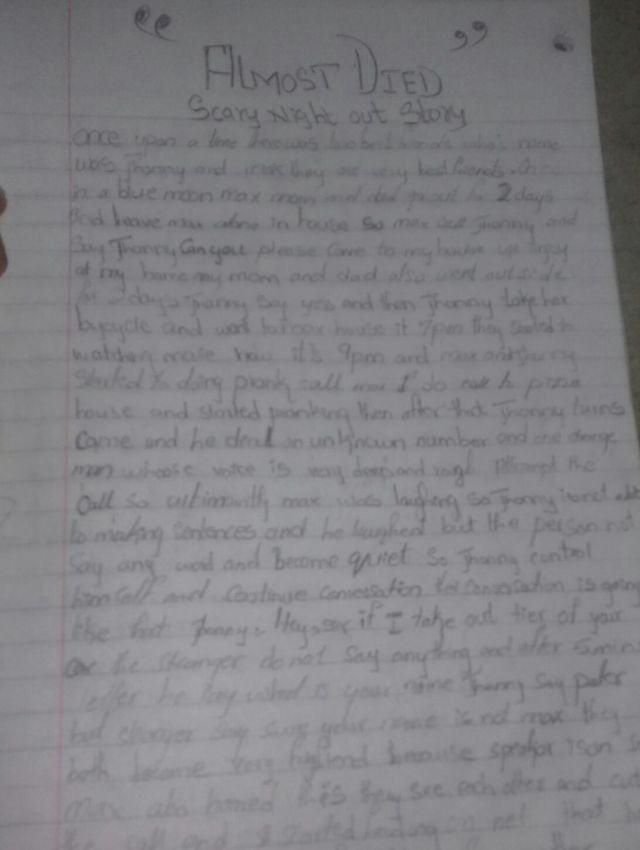 “ ”
ALMOST DIED
Scary Night out Story
once upon a time there was two best friends who's name
was Jhonny and max they are very best friends. Once
in a blue moon max mom and dad go out for 2 days
and leave max alone in house so max call Jhonny and
Say Jhonny Can you please Come to my house we enjoy
at my home my mom and dad also went outside
for 2 days Jhonny Say yes and then Jhonny take her
bycycle and went to max house it 7pm they started to
watching movie now it's 9pm and max and Jhonny
started to doing prank call max 1st do call to pizza
house and started pranking then after that Jhonny turns
Came and he deal an unknown number and one strange
man whoose voice is very deep and rough Attempt the
Call so ultimantly max was laughing so Jhonny
to making sentences and he laughed but the person not
Say any word and become quiet so Jhonny control
himself and Continue Conversation the Conversation is going
like that Jhonny. Hey, sir if I take out tier of your
car the stranger do not say anything and after 5 min
letter he say what is your name Jhonny Say peter
but stranger say sure your name is not max they
both become very because
max also they see each other and cut
the call and started on net that